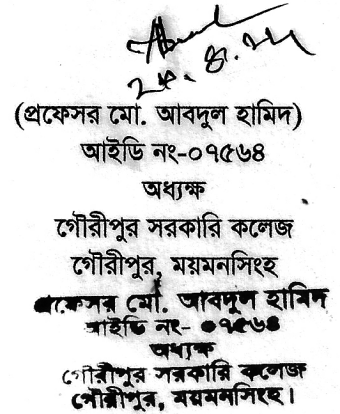 (প্রফেসর মো. আবদুল হামিদ)
আইডি নং-০৭৫৬৪
অধ্যক্ষ
গৌরীপুর সরকারি কলেজ
গৌরীপুর, ময়মনসিংহ
প্রফেসর মো. আবদুল হামিদ
আইডি নং- ০৭৫৬৪
অধ্যক্ষ
গৌরীপুর সরকারি কলেজ
গৌরীপুর, ময়মনসিংহ।